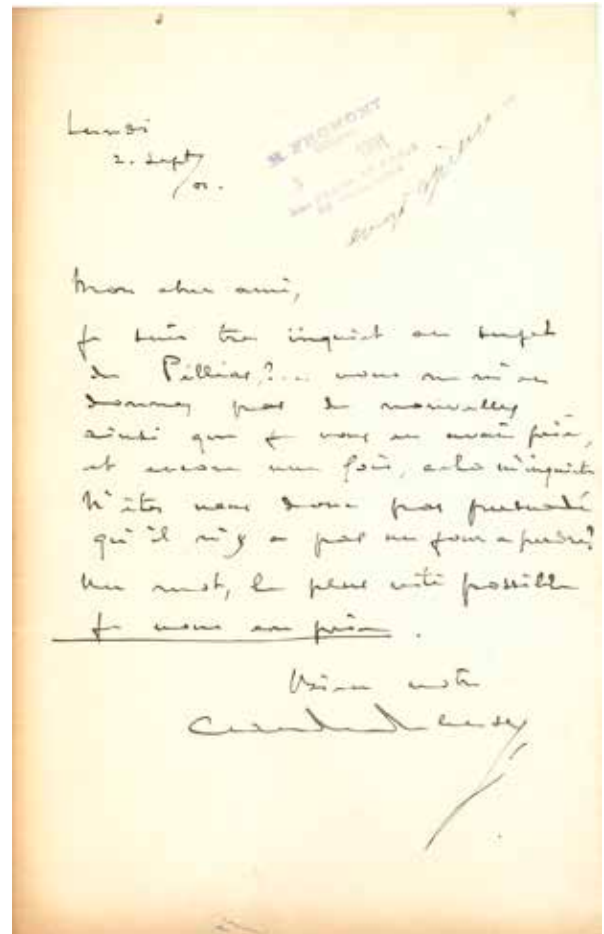 Lundi
2. Sept/
/01.
E. FROMONT
Mon cher ami,
Je suis très inquiet au sujet
de Pelléas ?... vous ne m'en
donnez pas de nouvelles
ainsi que je vous en avais prié,
et encore une fois, cela m'inquiète
N'êtes vous donc pas persuadé
qu'il n'y a pas un jour à perdre?
Un mot, le plus vite possible
je vous en prie.
Bien votre
Claude Debussy